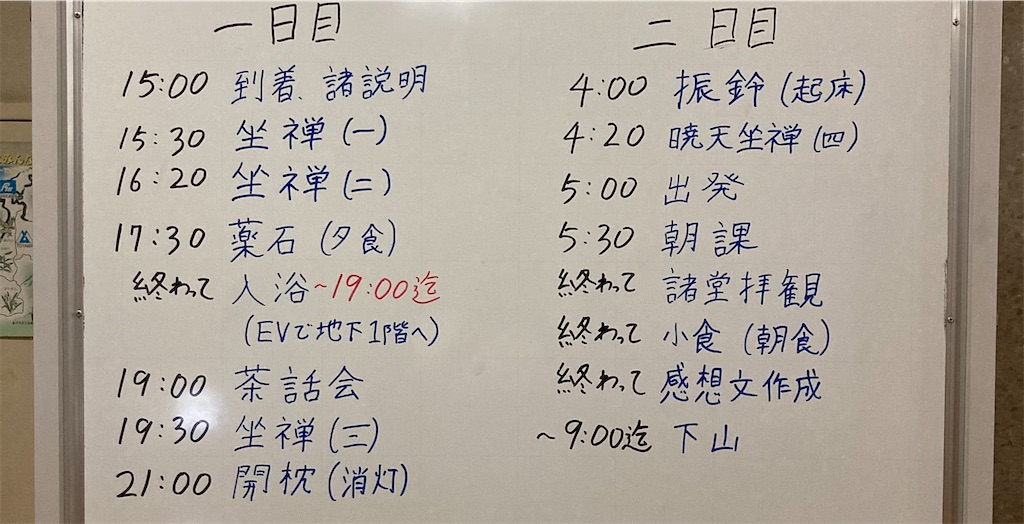 一日目
15:00 到着、諸説明
15:30 坐禅(一)
16:20 坐禅(二)
17:30 薬石(夕食)
終わって 入浴~19:00迄
(EVで地下1階へ)
19:00 茶話会
19:30 坐禅(三)
21:00 開枕(消灯)
二日目
4:00 振鈴(起床)
4:20 暁天坐禅(四)
5:00 出発
5:30 朝課
終わって 諸堂拝観
終わって 小食(朝食)
終わって 感想文作成
~9:00迄 下山